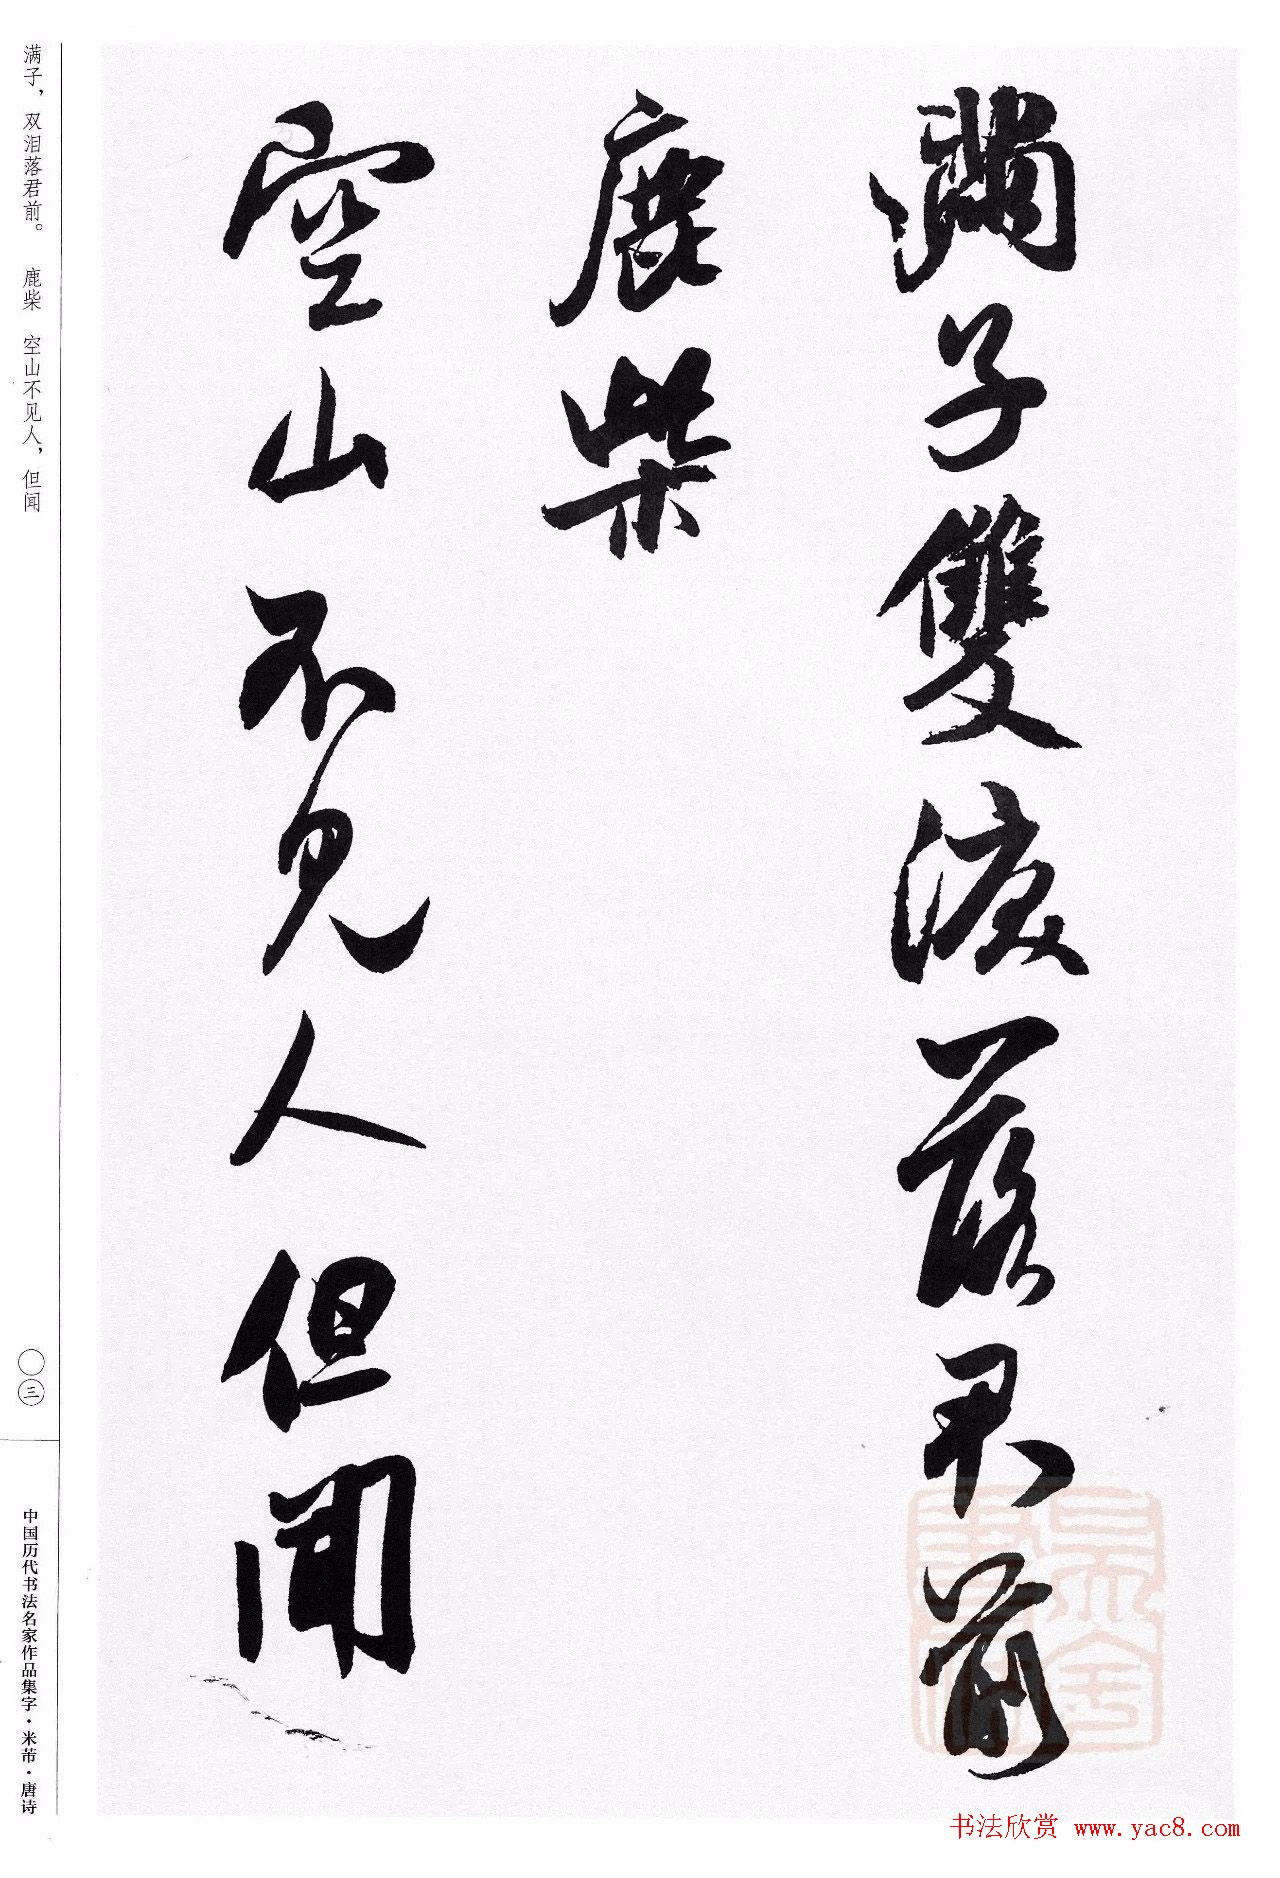 滿子雙淚落君前
鹿柴
空山不見人但聞
满子，双泪落君前。 鹿柴 空山不见人，但闻
〇三
中国历代书法名家作品集字·米芾·唐诗
书法欣赏 www.yac8.com